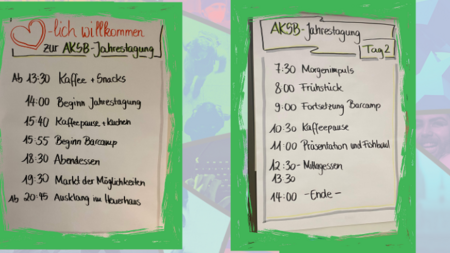 -lich willkommen
zur AKSB-Jahrestagung
Ab 13:30 Kaffee + Snacks
14:00 Beginn Jahrestagung
15:40 Kaffeepause + Kuchen
15:55 Beginn Barcamp
18:30 Abendessen
19:30 Markt der Möglichkeiten
Ab 20:45 Ausklang im Heuerhaus
AKSB-Jahrestagung
Tag 2
7:30 Morgenimpuls
8:00 Frühstück
9:00 Fortsetzung Barcamp
10:30 Kaffeepause
11:00 Präsentation und Fishbowl
12:30- Mittagessen
13:30
14:00 -Ende-